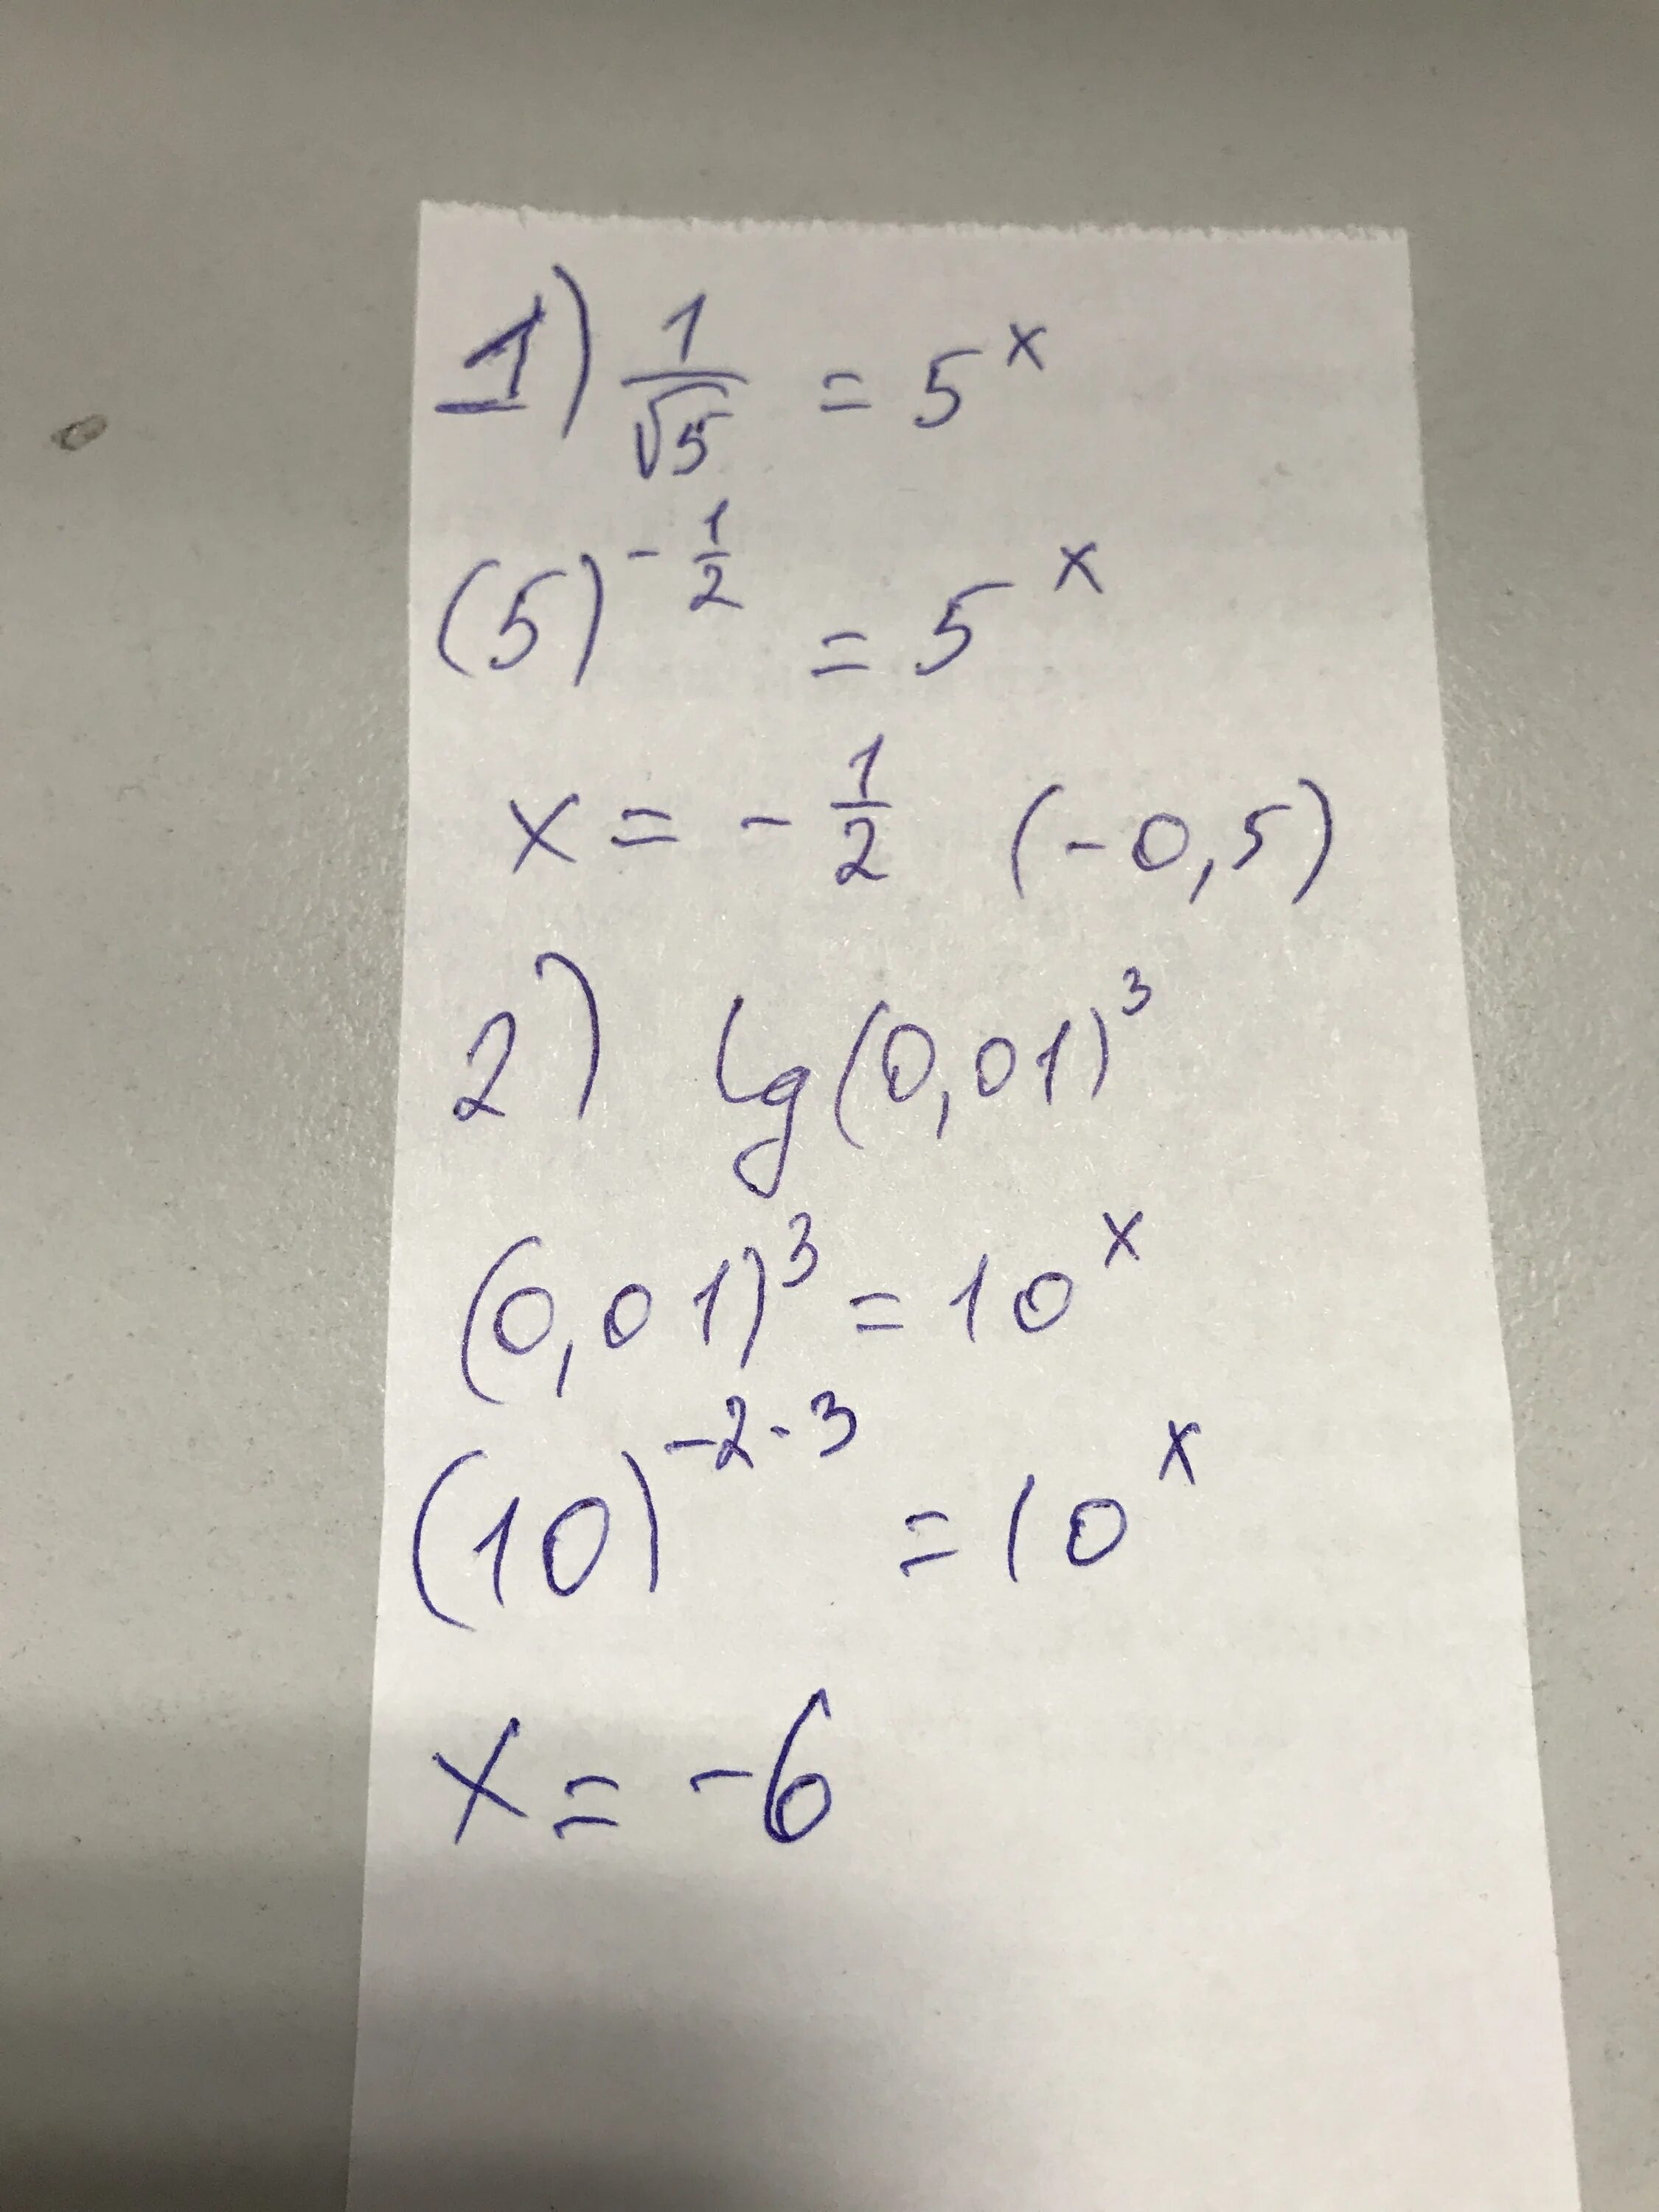 1) 1/√5 = 5^x
(5)^-1/2 = 5^x
x = - 1/2 (-0,5)
2) lg(0,01)^3
(0,01)^3 = 10^x
(10)^-2·3 = 10^x
x = -6